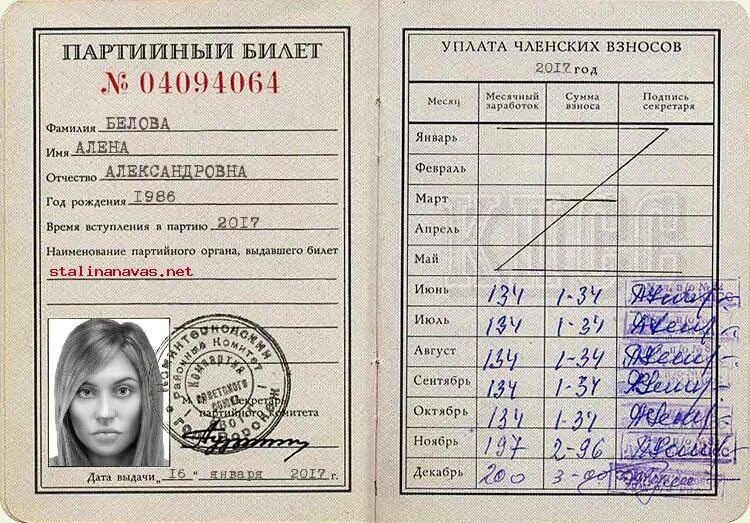 ПАРТИЙНЫЙ БИЛЕТ
№ 04094064
Фамилия БЕЛОВА
Имя АЛЕНА
Отчество АЛЕКСАНДРОВНА
Год рождения 1986
Время вступления в партию 2017
Наименование партийного органа, выдавшего билет
stalinanavas.net
районный Комитет
Компартия
Советского
союза
М. П. Секретарь
партийного комитета
Дата выдачи „16" января 2017 г.
УПЛАТА ЧЛЕНСКИХ ВЗНОСОВ
2017 год
Месяц Месячный заработок Сумма взноса Подпись секретаря
Январь
Февраль
Март
Апрель
Май
КПСС
Июнь 134 1-34
Июль 134 1-34
Август 134 1-34
Сентябрь 134 1-34
Октябрь 134 1-34
Ноябрь 197 2-96
Декабрь 200